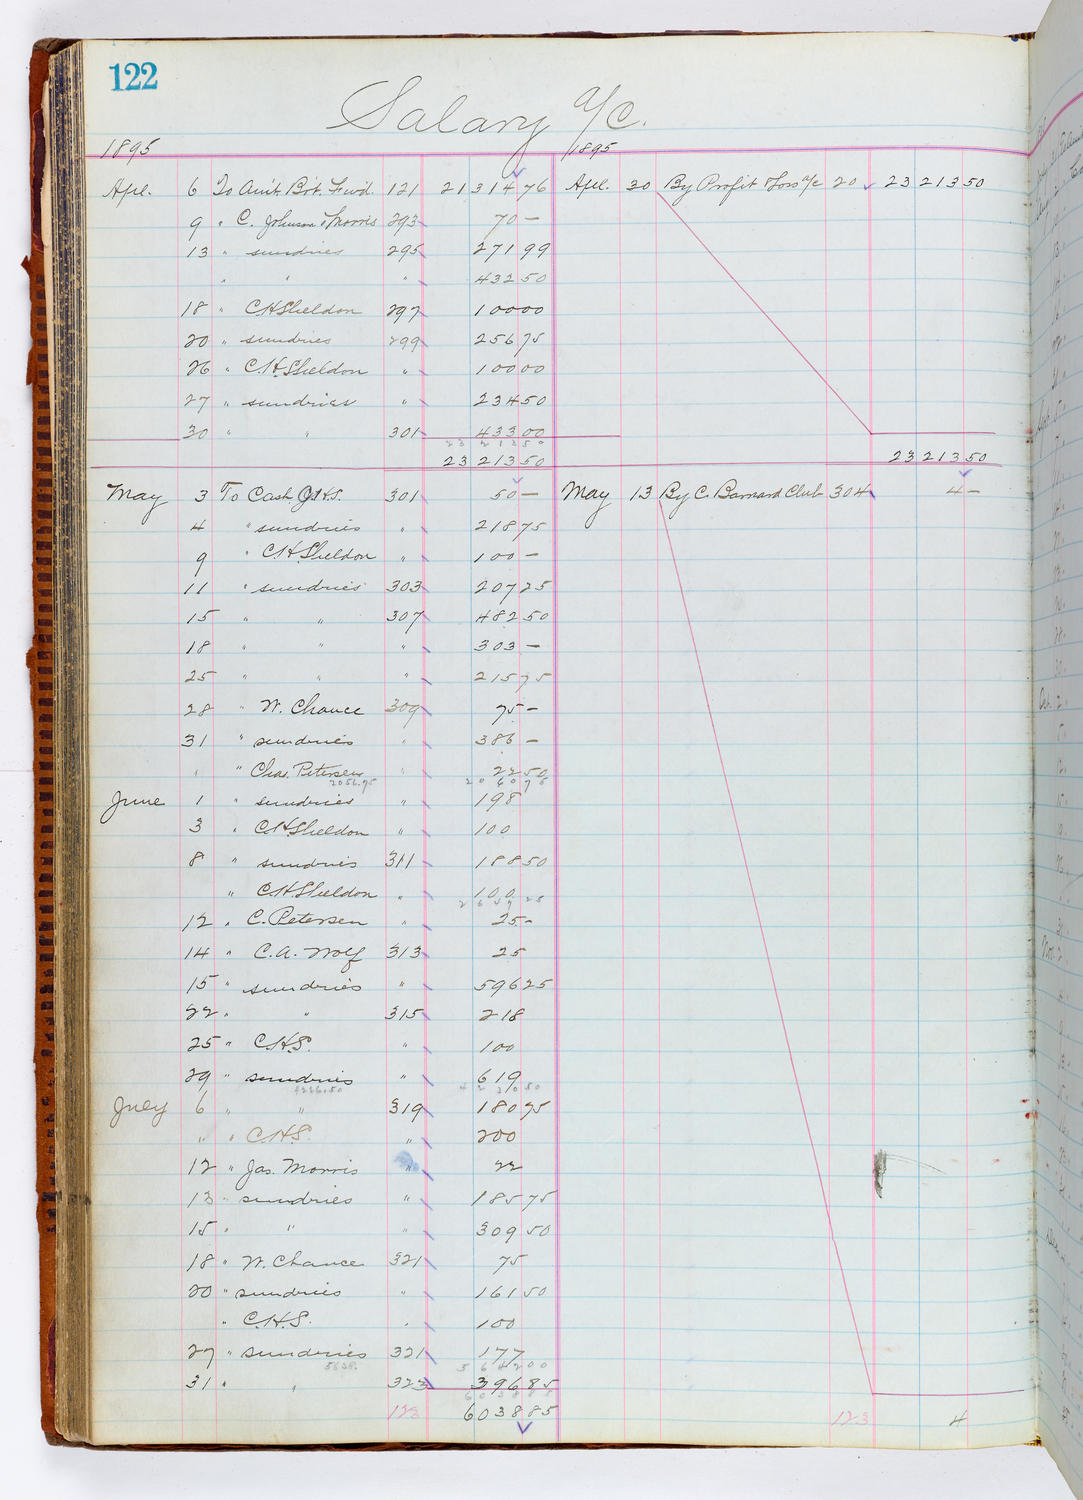 122
Salary a/c.
1895 1895
Apl. 6 To Am't Br't Fwd 121 21 314 76 Apl. 30 By Profit & Loss a/c 20 23 213 50
9 " C. Johnson & Morris 293 70 —
13 " sundries 295 271 99
" " " 432 50
18 " C H Sheldon 297 100 00
20 " sundries 299 256 75
26 " C. H. Sheldon " 100 00
27 " sundries " 234 50
30 " " 301 433 00
23 213 50
23 213 50 23 213 50
May 3 To Cash C.H.S. 301 50 — May 13 By C. Barnard Club 304 4 —
4 " sundries " 218 75
9 " C. H. Sheldon " 100 —
11 " sundries 303 207 25
15 " " 307 482 50
18 " " " 303 —
25 " " " 215 75
28 " W. Chance 309 75 —
31 " sundries " 386 —
" " Chas. Petersen " 22 50
2056.75 2060 75
June 1 " sundries " 198
3 " C. H. Sheldon " 100
8 " sundries 311 188 50
" C H Sheldon " 100
2647 25
12 " C. Petersen " 25 —
14 " C. A. Wolf 313 25
15 " sundries " 596 25
22 " " 315 218
25 " C. H. S. " 100
29 " sundries " 619
4226.50 4230 50
July 6 " " 319 180 75
" " C. H. S. " 200
12 " Jas. Morris " 22
13 " sundries " 185 75
15 " " " 309 50
18 " W. Chance 321 75
20 " sundries " 161 50
" C. H. S. " 100
27 " sundries 321 177
5638. 5642 00
31 " " 323 396 85
6038 85
123 6038 85 123 4